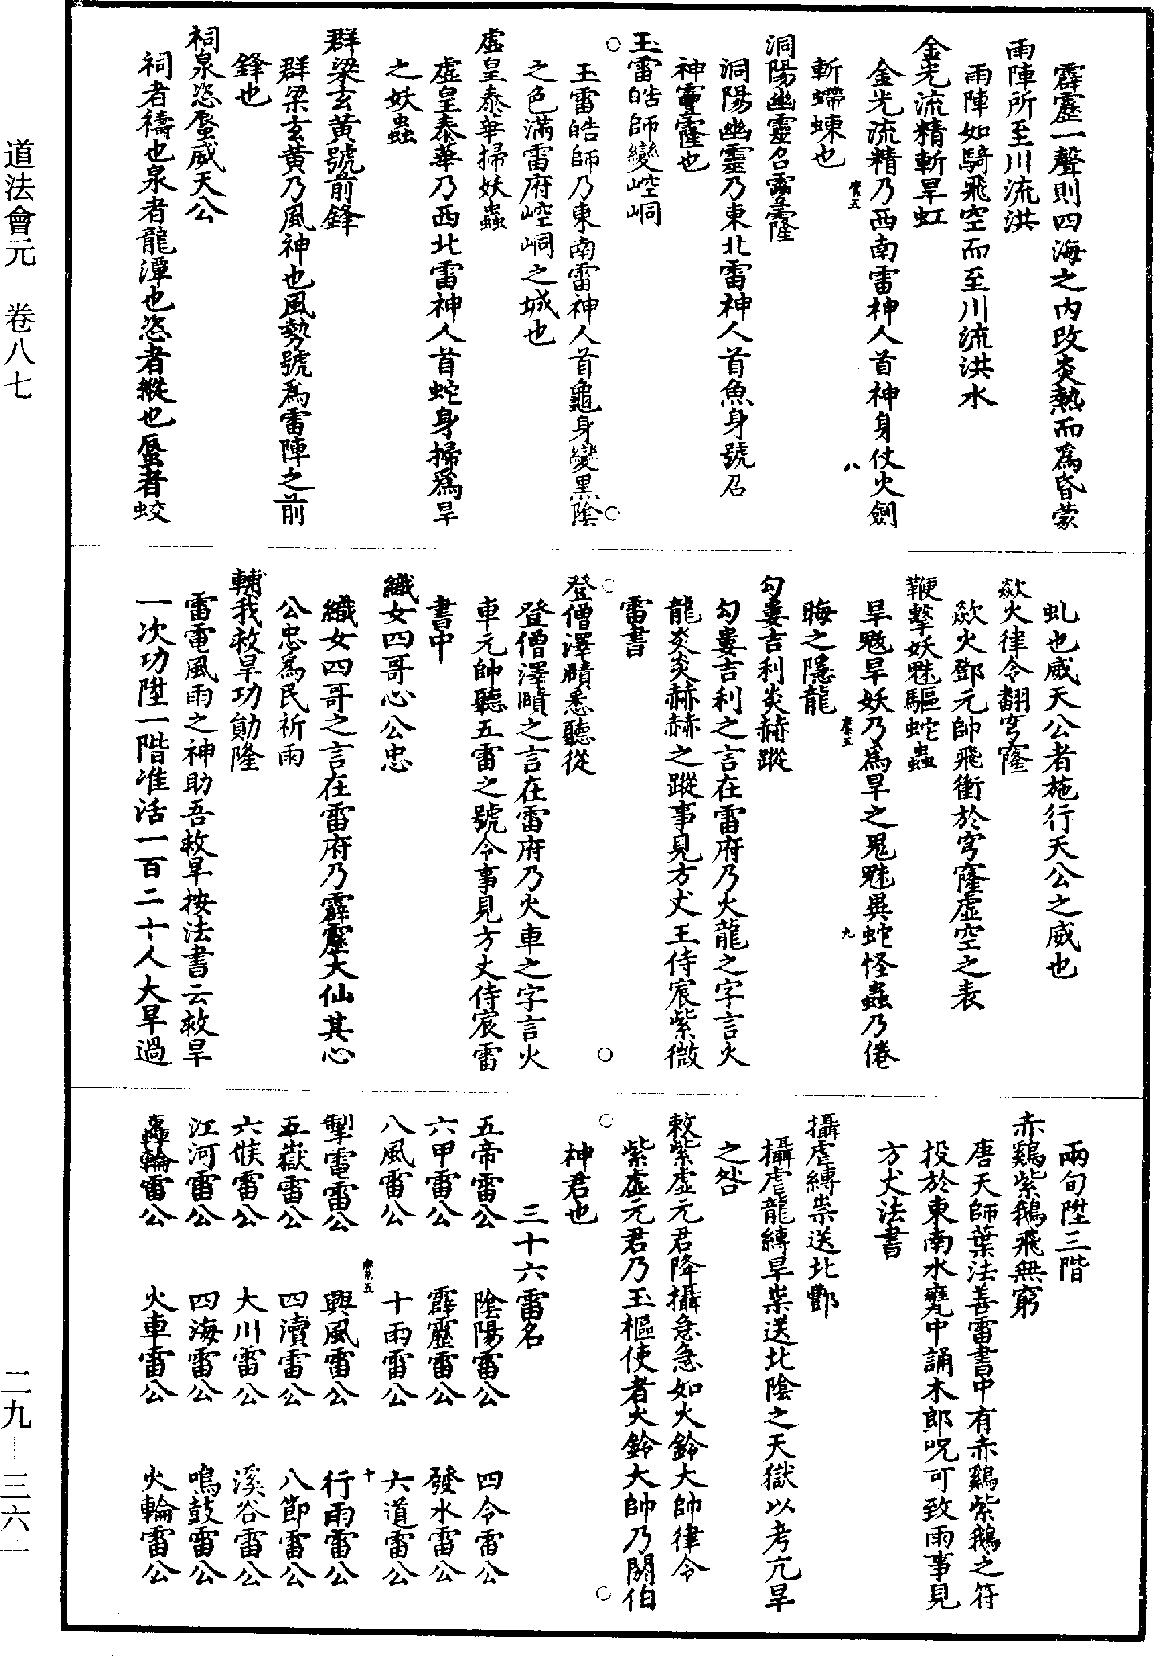 霹靂一聲則四海之內改炎熱而爲昏蒙
雨陣所至川流洪
雨陣如騎飛空而至川流洪水
金光流精斬旱虹
金光流精乃西南雷神人首神身仗火劍
斬螮蝀也
洞陽幽靈召雷霳
洞陽幽靈乃東北雷神人首魚身號召
神靈霳也
玉雷皓師變崆峒
玉雷皓師乃東南雷神人首龜身變黑陰
之色滿雷府崆峒之城也
虛皇泰華掃妖蟲
虛皇泰華乃西北雷神人首蛇身掃爲旱
之妖蟲
群梁玄黃號前鋒
群梁玄黃乃風神也風勢號爲雷陣之前
鋒也
祠泉恣蜃威天公
祠者禱也泉者龍潭也恣者縱也蜃者蛟
虬也威天公者施行天公之威也
歘火律令翻穹窿
歘火鄧元帥飛衝於穹窿虛空之表
鞭擊妖魅驅蛇蟲
旱魃旱妖乃爲旱之鬼魅異蛇怪蟲乃倦
晦之隱龍
勾婁吉利炎赫蹤
勾婁吉利之言在雷府乃火龍之字言火
龍炎炎赫赫之蹤事見方丈王侍宸紫微
雷書
登僧澤賾悉聽從
登僧澤賾之言在雷府乃火車之字言火
車元帥聽五雷之號令事見方丈侍宸雷
書中
織女四哥心公忠
織女四哥之言在雷府乃霹靂大仙其心
公忠爲民祈雨
輔我救旱功勛隆
雷電風雨之神助吾救旱按法書云救旱
一次功陞一階准活一百二十人大旱過
兩旬陞三階
赤鷄紫鵝飛無窮
唐天師葉法善雷書中有赤鷄紫鵝之符
投於東南水甕中誦木郎呪可致雨事見
方丈法書
攝虐縛祟送北酆
攝虐龍縛旱祟送北陰之天獄以考亢旱
之咎
敕紫虛元君降攝急急如火鈴大帥律令
紫虛元君乃玉樞使者火鈴大帥乃閼伯
神君也
三十六雷名
五帝雷公 陰陽雷公 四令雷公
六甲雷公 霹靂雷公 發水雷公
八風雷公 十雨雷公 六道雷公
掣雷雷公 興風雷公 行雨雷公
五嶽雷公 四瀆雷公 八節雷公
六候雷公 大川雷公 溪谷雷公
江河雷公 四海雷公 鳴鼓雷公
轟輪雷公 火車雷公 火輪雷公
八
九
十
道法會元 卷八七
二九—三六一